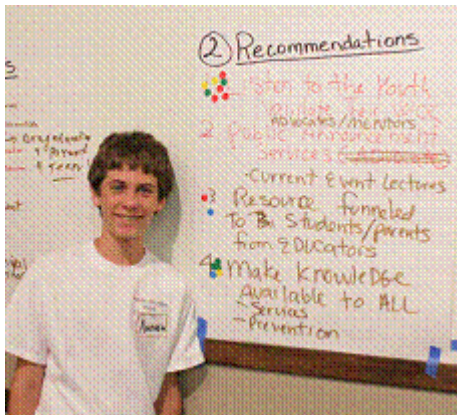 s
& Parent
& Teen
② Recommendations
1. Listen to the Youth
Advocates/mentors
2. Public Announcement
Services
-Current Event Lectures
3 Resource funneled
To Students/parents
from EDUCators
4 Make KnowleDGe
available to ALL
-Services
-Prevention